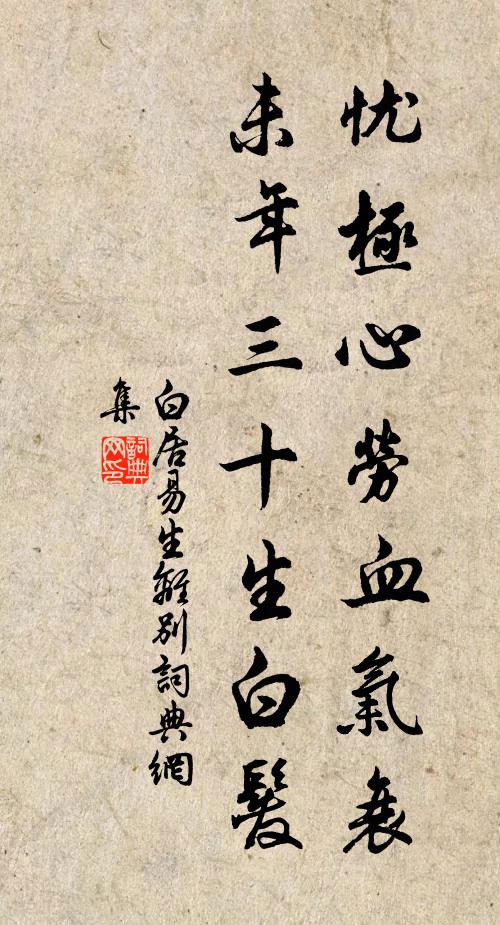 忧極心勞血氣衰
未年三十生白髮
白居易生離别詞典網
集
詞典网印